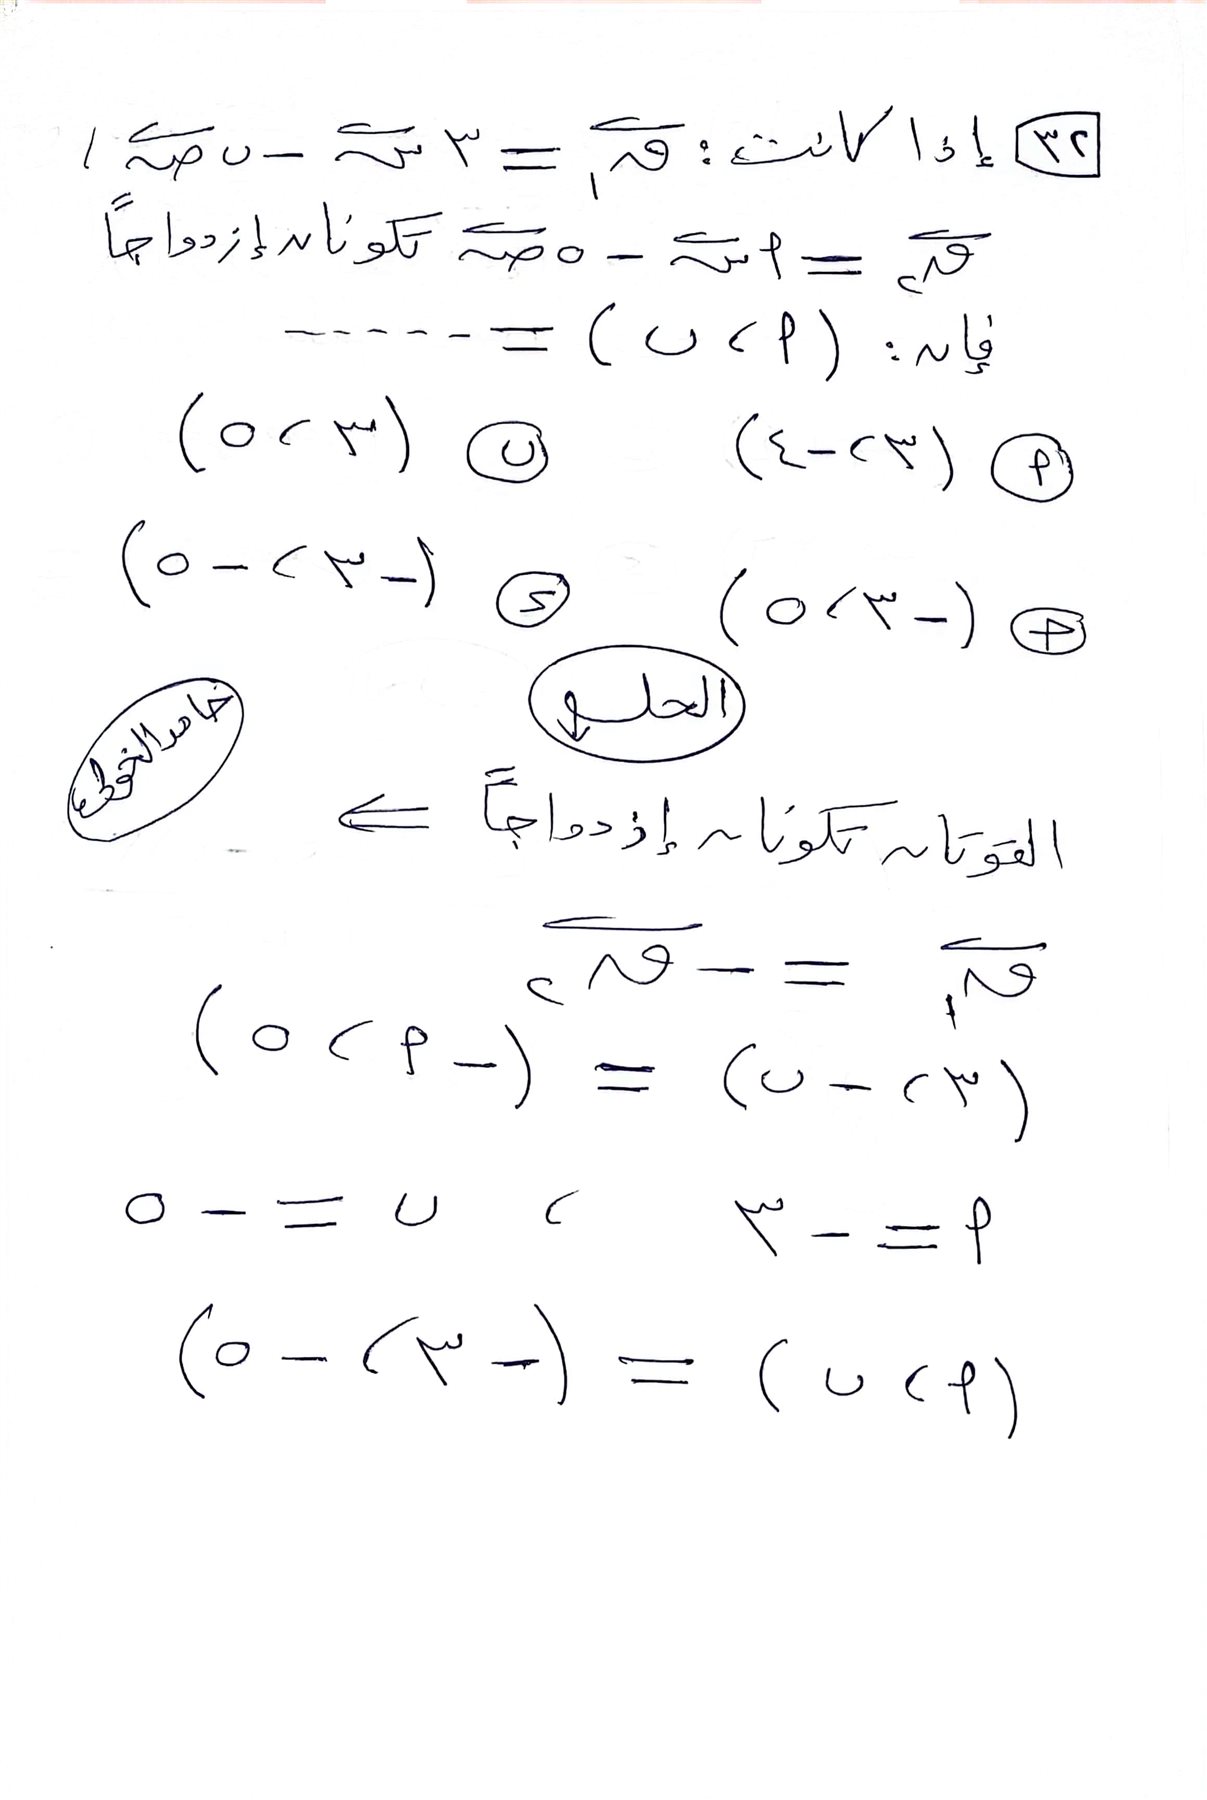 ٣٢ إذا كانت : ق١ = ٣ س − ب ص ،
ق٢ = م س − ٥ ص تكونان إزدواجاً
فإن : (م ، ب) = - - - - -
م (٣ ، −٤) ب (٣ ، ٥)
ج (−٣ ، ٥) د (−٣ ، −٥)
الحل
القوتان تكونان إزدواجاً ⇐
ق١ = − ق٢
(٣ ، − ب) = (− م ، ٥)
م = − ٣ ، ب = − ٥
(م ، ب) = (− ٣ ، − ٥)